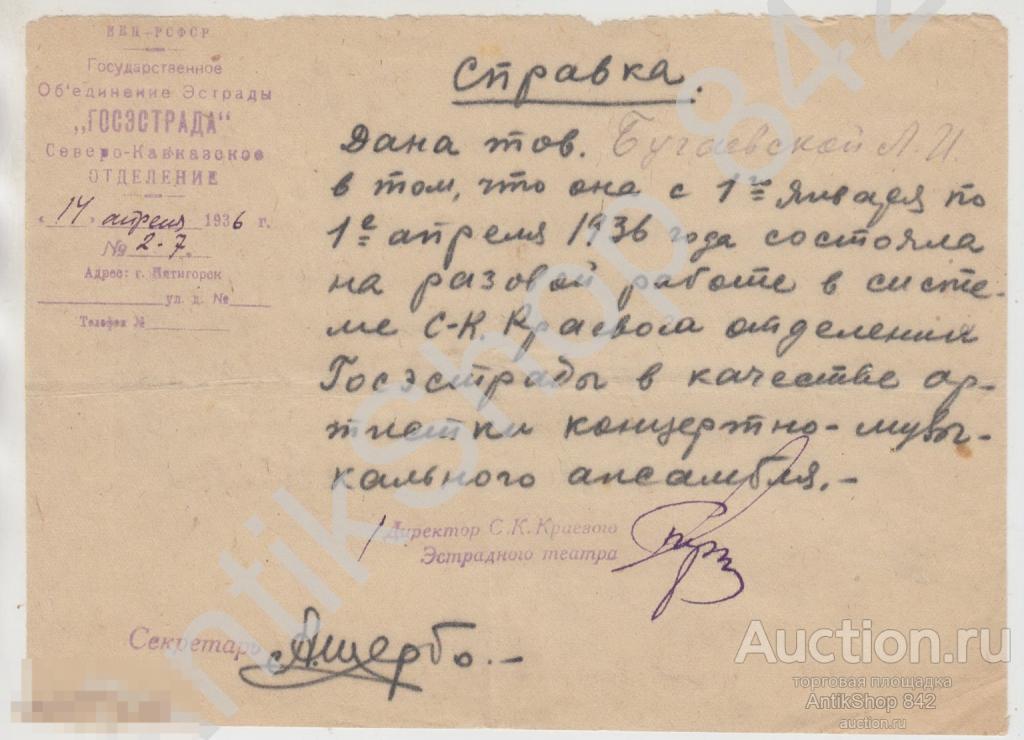 НКП-РСФСР
Государственное
Об'единение Эстрады
„ГОСЭСТРАДА"
Северо-Кавказское
ОТДЕЛЕНИЕ
«14» апреля 1936 г.
№ 2-7.
Адрес: г. Пятигорск
ул. д. №
Телефон №
Справка.
Дана тов. Бугаевской Л.И.
в том, что она с 1го января по
1е апреля 1936 года состояла
на разовой работе в систе-
ме С-К. Краевого отделения
Госэстрады в качестве ар-
тистки концертно-музы-
кального ансамбля.-
Директор С.К.Краевого
Эстрадного театра
Секретарь А.Щербо.-
antikshop 842
Auction.ru
торговая площадка
AntikShop 842
auction.ru